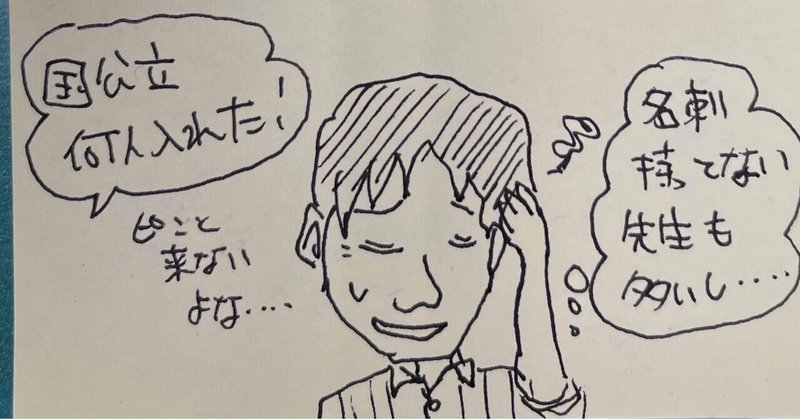 国公立
何人入れた!
ピンと
来ない
よな....
名刺
持ってない
先生も
多いし....